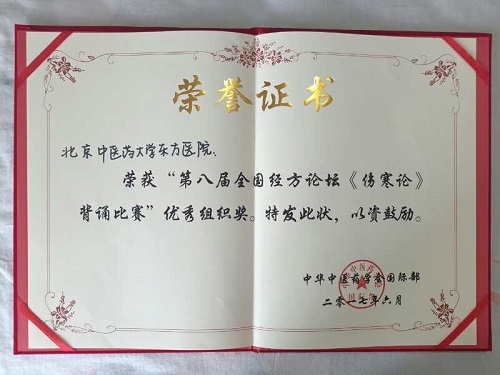 荣誉证书
北京中医药大学东方医院：
荣获“第八届全国经方论坛《伤寒论》
背诵比赛”优秀组织奖。特发此状，以资鼓励。
中华中医药学会国际部
二〇一七年六月